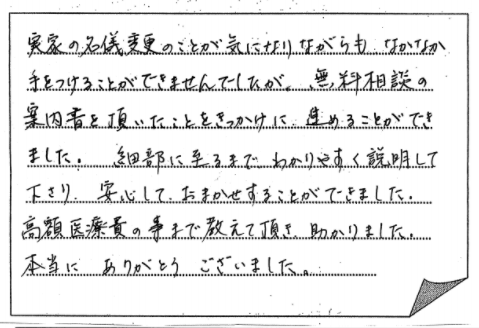 実家の名儀変更のことが気になりながらも なかなか
手をつけることができませんでしたが、無料相談の
案内書を頂いたことをきっかけに、進めることができ
ました。 細部に至るまで わかりやすく説明して
下さり、安心して おまかせすることができました。
高額医療費の事まで教えて頂き、助かりました。
本当に ありがとう ございました。